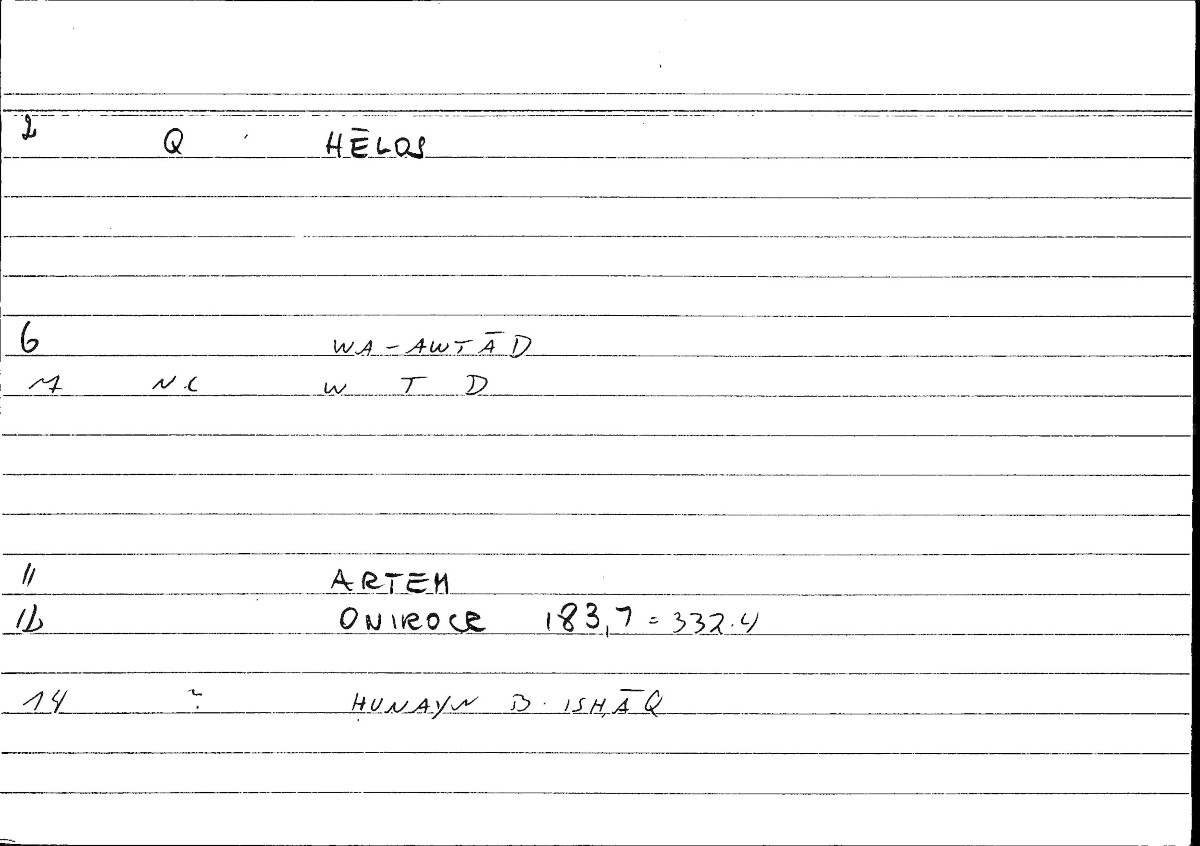 2 Q HĒLOS
6 WA-AWTĀD
7 NC W T D
11 ARTEM
12 ONIROCR 183,7 = 332.4
14 ? ḤUNAYN B. ISḤĀQ